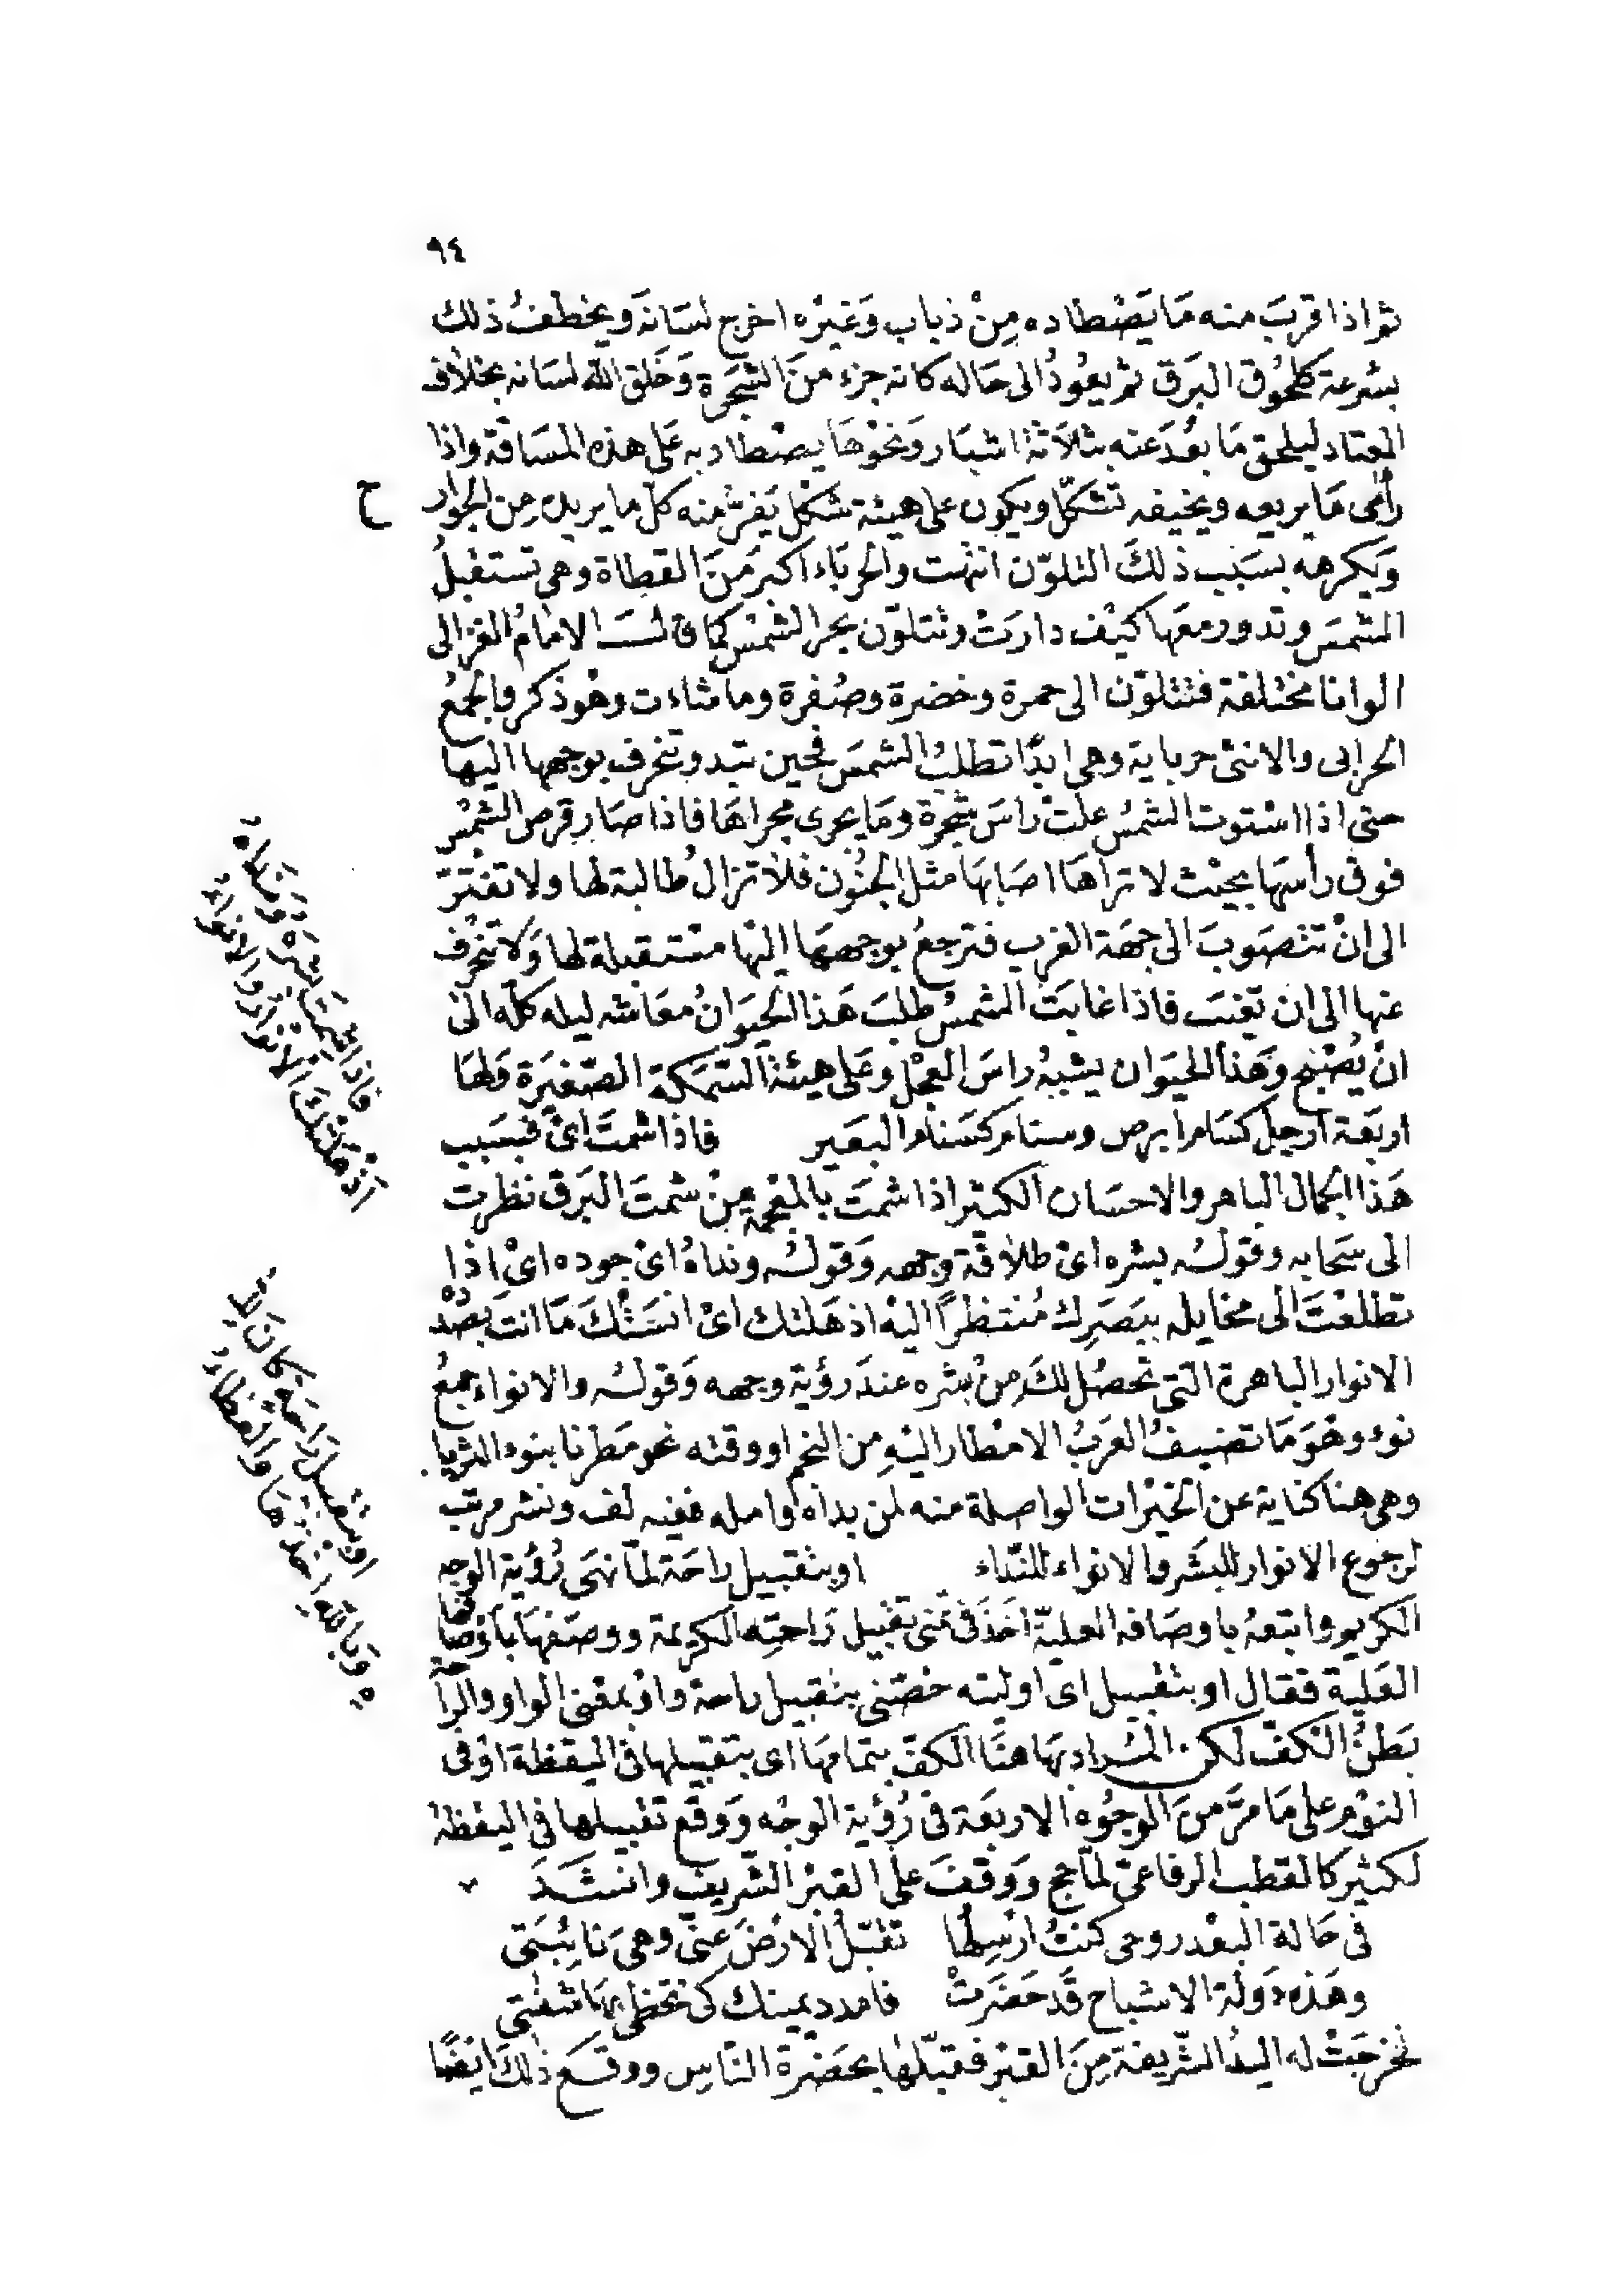 ٩٤
ثم اذا قربَ منه مَا يَصْطاده مِنْ ذباب وَغيْره اخرج لسَانهَ ويخطفُ ذلك
بسُرعة كلحُوق البَرق ثم يعُودُ الى حَاله كانه جزء منَ الشجَرة وَخَلق الله لسَانه بخلاف
المعتاد ليلحق مَا بعُدَ عنه بثلاَثة اشبَار وَنحْوهَا يصْطاد به عَلى هذه المسَافة واذا
رأى مَا يريعه ويخيفه تشكّل ويكون على هيئة شكل يَفرّ منه كلّ ما يريده مِن الجوارح
وَيكرهه بسَبب ذلكَ التلوّن انتهت والحربَاء اكبر مَنَ القطاة وهى تستقبلُ
الشمسَ وتدور معَها كيْف دارَتْ وتتلوّن بحر الشمْس كما قالــَـ الامامُ الغزالى
الوانا مختلفة فتتلوّن الى حمرة وخضرة وصُفرة وما شاءت وهْوَ ذكر والجمعُ
الحرابى والانثى حرباية وهى ابدًا تطلبُ الشمسَ فحين تبدو تنحرف بوجهها اليهَا
حتى اذا استوت الشمسُ علتْ راسَ شجرة ومَا يجرى مجراهَا فاذا صَار قرص الشمْس
فوق رأسهَا بحيْث لا ترَاهَا اصَابهَا مثل الجنُون فلاَ تزال طُالبة لها ولا تفْترّ
الى انْ تنصَوبَ الى جهَة الغرب فترجعُ بوجههَا اليْهَا مسْتقبلة لها وَلا تنحْرف
عنها الى ان تغيَب فاذا غابَت الشمسُ طلبَ هَذا الحيَوانُ معَاشه ليله كله الى
انْ يُصْبح وَهَذا الحيَوان يشبهُ راسَ العجْل وعَلى هيئة السّمَكة الصّغيَرة وَلهَا
اربعَة ارجل كسَام ابرص وسنام كسَنام البعَير فاذا شمتَ اىْ فبسَبب
هَذا الجمال الباهر والاحسَان الكثير اذا شمتَ بالمعْجمة مِنْ شمتَ البَرق نظرت
الى سَحابه وقولهُ بشره اىْ طلاقَة وجهه وَقولهُ ونداهُ اىْ جوده اىْ اِذا
تطلعْتَ الى مخايله ببَصَرك مُنتظرًا اليْه اذهَلتك اىْ انسَتْكَ مَا انت بصَدْده
الانوار الباهرة التى تحصُل لكَ مِنْ بشره عندَ رؤية وجهه وَقولهُ والانواء جمعُ
نوء وهَوَ مَا تضيفُ العَربُ الامْطار اليْهِ مِن النجم او وقته نحو مَطرنا بنوء الثريا
وهى هنا كناية عن الخيْرات الواصلة منه لمن بدَاه وامله ففيه لف ونشر مرتب
لرجُوع الانوار للبشَر والانواء للنّداء او بتقبيل راحَة لمّا نهَى رُؤية الوجه
الكريم واتبعهُ باوصَافه العليّة اخَذَ فى تمنى تقبيل رَاحتِه الكريمة ووصَفهَا باوْصَافها
العَلية فقال او بتقبيل اى او ليته خصّنى بتقبيل راحة واوْ بمعْنى الواو والراحة
بَطنُ الكفّ لكن المُراد بهَا هنَا الكفّ بتمامهَا اى بتقبيلها فى اليقظة اوْ فى
النوْم على مَا مرَّ منَ الوجُوه الاربعَة فى رُؤية الوجْه وَوقَع تقبيلها فى اليقظة
لكثير كالقطب الرفاعىّ لمّا حج وَوَقفَ على القبْر الشّريف وانشَدَ
فى حَالة البعْد روحى كنتُ ارْسِلُها تقبّلُ الارْضَ عنىّ وهىَ نايُبتى
وهَذه دَولَة الاشباح قَد حَضَرتْ فامدد يمينك كى تحْظى بهَا شفتى
فخرجَتْ له اليدُ الشّريفة مِنَ القبْر فقبّلهَا بحَضْرة النّاسِ ووقــَعَ ذلكَ ايضًا
فاذا شمتَ بشرَه وَنداه
اَذهَلتْكَ الاَنوارُ والانواءُ
او بتقبيل رَاحَةٍ كانَ لِلّـ
ـهِ وَباللهِ اخذُهَا وَالعطاءُ